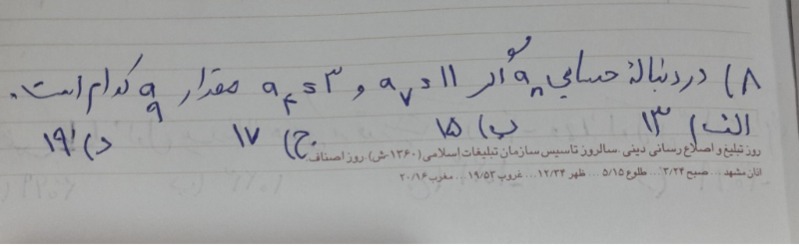 ۸) در دنباله حسابی aₙ اگر a₇=۱۱ و a₄=۳ مقدار a₉ کدام است.
الف) ۱۳ ب) ۱۵ ج) ۱۷ د) ۱۹
روز تبلیغ و اطلاع رسانی دینی سالروز تاسیس سازمان تبلیغات اسلامی (۱۳۶۰-ش) روز اصناف
اذان مشهد ... صبح ۳/۲۴ ... طلوع ۵/۱۵ ... ظهر ۱۲/۳۴ ... غروب ۱۹/۵۳ ... مغرب ۲۰/۱۶